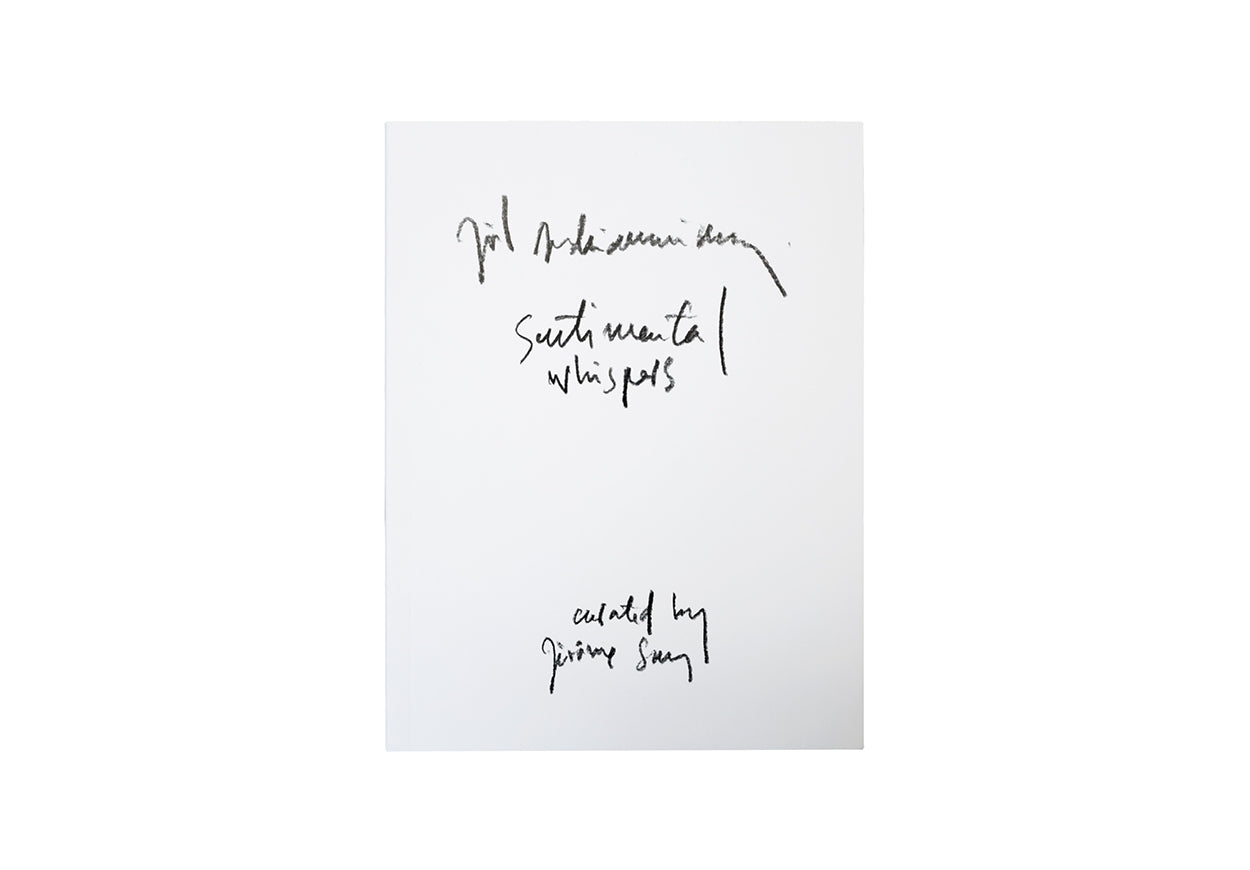 Joël Andrianomearisoa
sentimental
whispers
curated by
Jérôme Sans